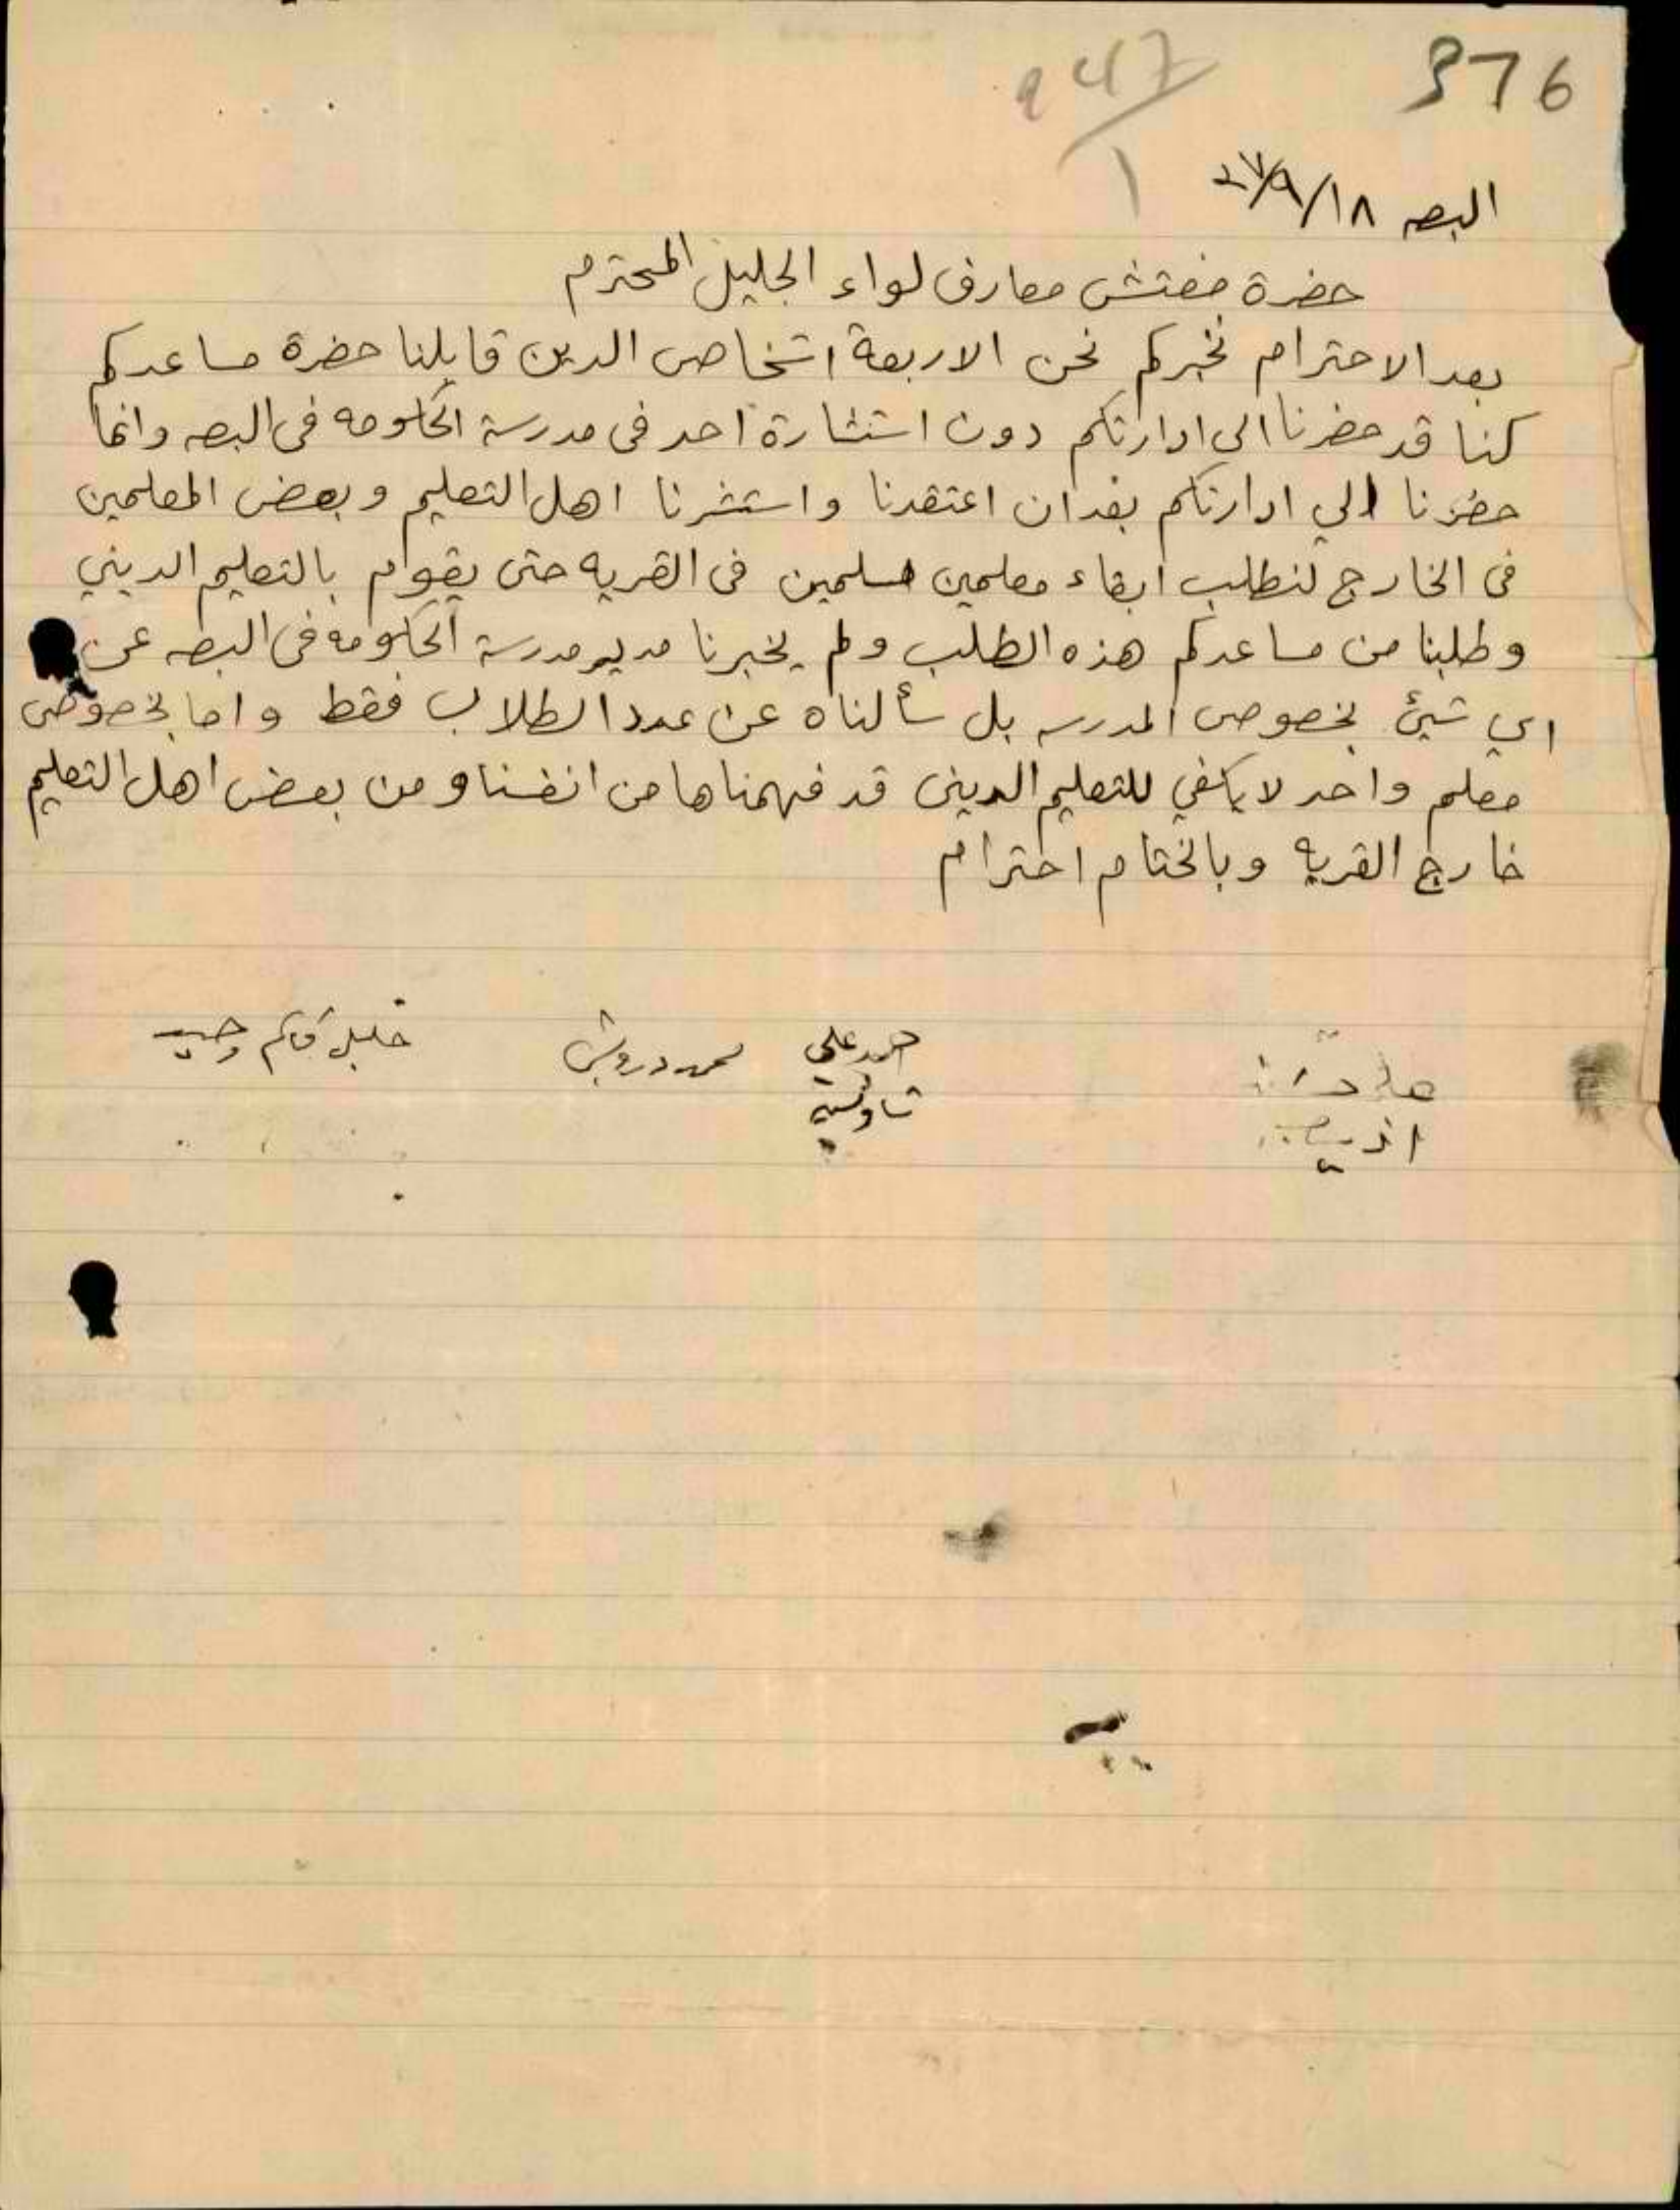 376
947/1
البصه ١٨/٩/٤٧
حضرة مفتش معارف لواء الجليل المحترم
بعد الاحترام نخبركم نحن الاربعة اشخاص الدين قابلنا حضرة مساعدكم
كنا قد حضرنا الى ادارتكم دون استشارة احد فى مدرسة الحكومه فى البصه وانما
حضرنا الي ادارتكم بعد ان اعتقدنا واستشرنا اهل التعليم وبعض المعلمين
فى الخارج لنطلب ابقاء معلمين مسلمين فى القريه حتى يقوام بالتعليم الديني
وطلبنا من مساعدكم هذه الطلب ولم يخبرنا مدير مدرسة الحكومه فى البصه عن
اي شيئ بخصوص المدرسه بل سألناه عن عدد الطلاب فقط واما بخصوص
معلم واحد لا يكفي للتعليم الدينى قد فهمناها من انفسنا ومن بعض اهل التعليم
خارج القريه وبالختام احترام
احمد علي
محمد درويش
خليل قاسم